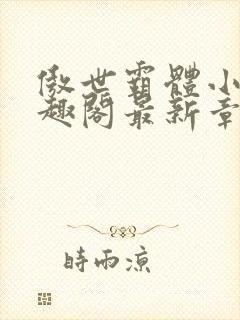 傲世霸體小
趣閣最新章
時雨涼